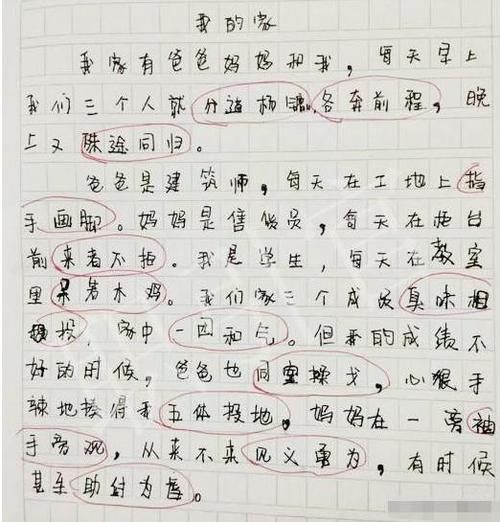 我的家
我家有爸爸妈妈和我，每天早上
我们三个人就分道扬镳，各奔前程，晚
上又殊途同归。
爸爸是建筑师，每天在工地上指
手画脚。妈妈是售货员，每天在柜台
前来者不拒。我是学生，每天在教室
里呆若木鸡。我们家三个成员臭味相
投，家中一团和气。但我的成绩不
好的时候，爸爸也同室操戈，心狠手
辣地揍得我五体投地，妈妈在一旁袖
手旁观，从来不来见义勇为，有时候
甚至助纣为虐。